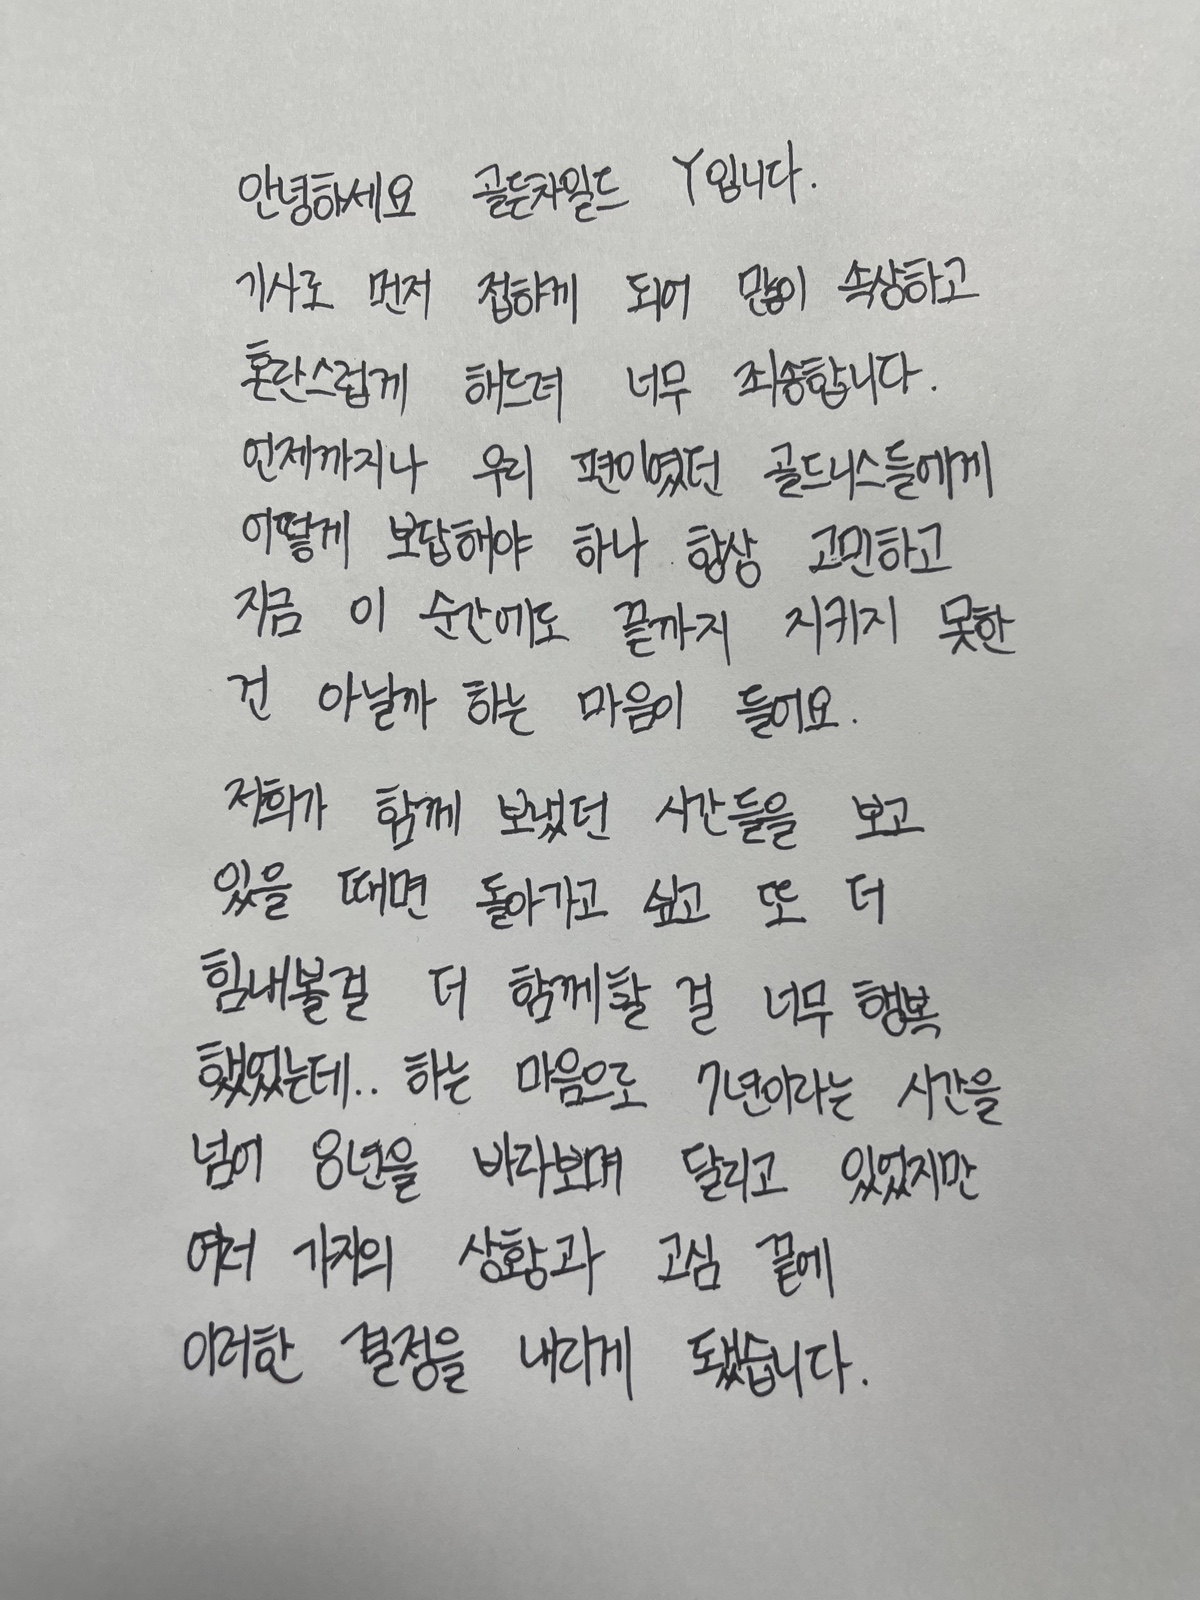 안녕하세요 골든차일드 Y입니다.
기사로 먼저 접하게 되어 많이 속상하고
혼란스럽게 해드려 너무 죄송합니다.
언제까지나 우리 편이였던 골드니스들에게
어떻게 보답해야 하나 항상 고민하고
지금 이 순간에도 끝까지 지키지 못한
건 아닐까 하는 마음이 들어요.
저희가 함께 보냈던 시간들을 보고
있을 때면 돌아가고 싶고 또 더
힘내볼걸 더 함께할 걸 너무 행복
했었는데.. 하는 마음으로 7년이라는 시간을
넘어 8년을 바라보며 달리고 있었지만
여러 가지의 상황과 고심 끝에
이러한 결정을 내리게 됐습니다.